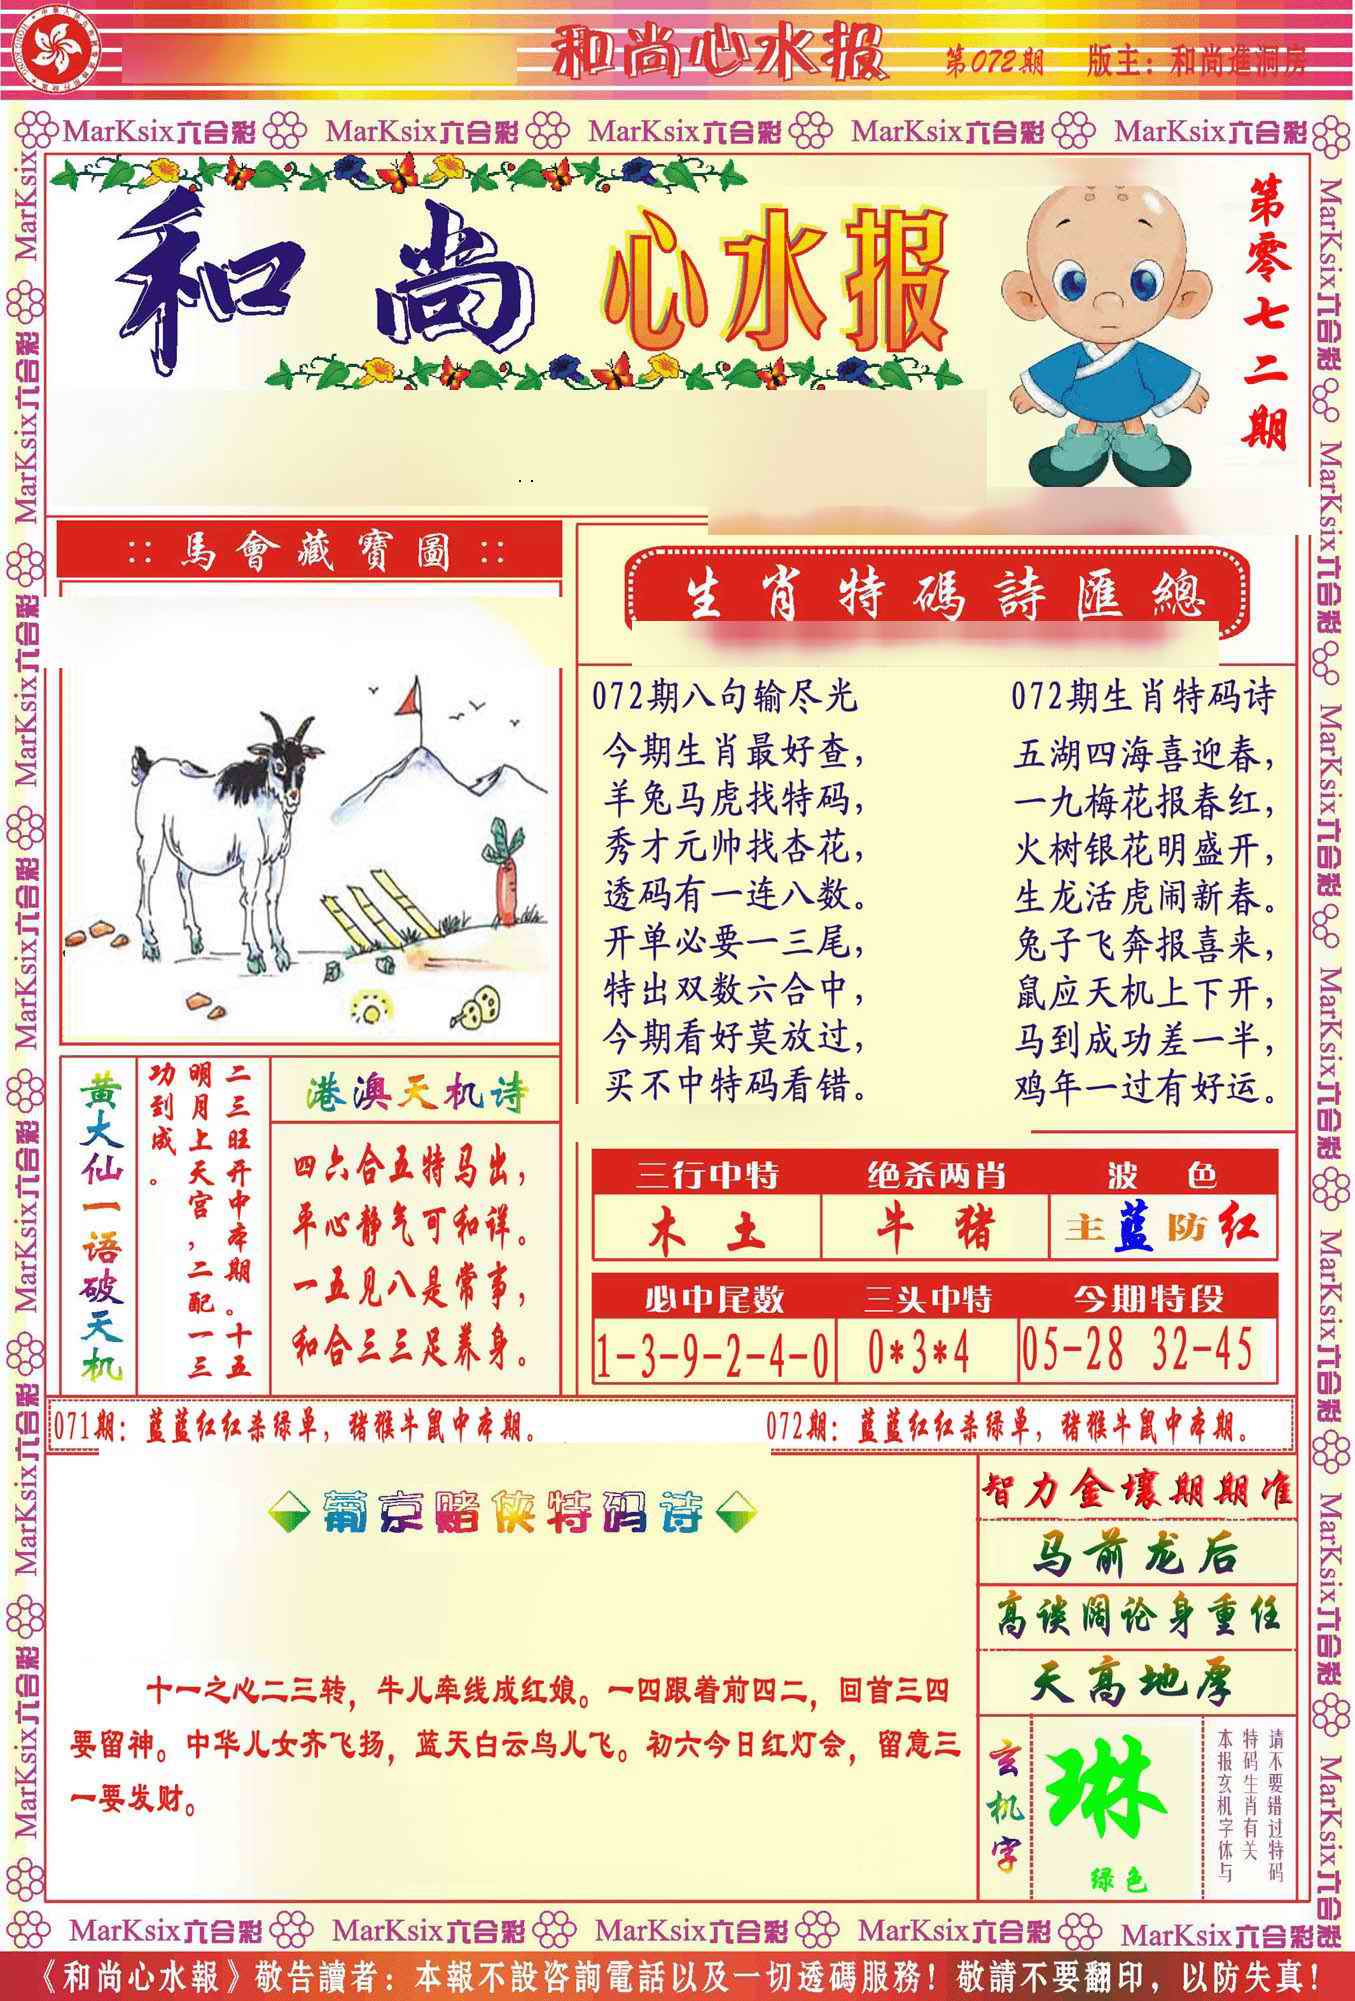 和尚心水报
第072期
版主：和尚進洞房
MarKsix六合彩 MarKsix六合彩 MarKsix六合彩 MarKsix六合彩 MarKsix六合彩
和尚 心水报
第零七二期
::馬會藏寶圖::
生肖特碼詩匯總
072期八句输尽光
今期生肖最好查，
羊兔马虎找特码，
秀才元帅找杏花，
透码有一连八数。
开单必要一三尾，
特出双数六合中，
今期看好莫放过，
买不中特码看错。
072期生肖特码诗
五湖四海喜迎春，
一九梅花报春红，
火树银花明盛开，
生龙活虎闹新春。
兔子飞奔报喜来，
鼠应天机上下开，
马到成功差一半，
鸡年一过有好运。
黄大仙一语破天机
二三旺开中本期。十五
明月上天宫,二配一三
功到成。
港澳天机诗
四六合五特马出，
平心静气可和详。
一五见八是常事，
和合三三足养身。
三行中特 绝杀两肖 波色
木土 牛猪 主蓝防红
必中尾数 三头中特 今期特段
1-3-9-2-4-0 0*3*4 05-28 32-45
071期：蓝蓝红红杀绿单，猪猴牛鼠中本期。
072期：蓝蓝红红杀绿单，猪猴牛鼠中本期。
葡京赌侠特码诗
十一之心二三转，牛儿牵线成红娘。一四跟着前四二，回首三四
要留神。中华儿女齐飞扬，蓝天白云鸟儿飞。初六今日红灯会，留意三
一要发财。
智力金壤期期准
马前龙后
高谈阔论身重任
天高地厚
玄机字
琳
绿色
请不要错过特码
特码生肖有关
本报玄机字体与
MarKsix六合彩 MarKsix六合彩 MarKsix六合彩 MarKsix六合彩 MarKsix六合彩
《和尚心水報》敬告讀者：本報不設咨詢電話以及一切透碼服務！敬請不要翻印，以防失真！